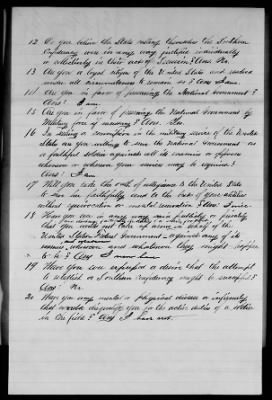 12 Do you believe the States styling themselves the Southern
Confederacy were in any way justified individually
or collectively in their acts of Secession? Ans. No.
13 Are you a loyal citizen of the United States and resolved
under all circumstances to remain so? Ans I am.
14 Are you in favor of preserving the National Government?
Ans! I am.
15 Are you in favor of preserving the National Government by
Military force if necessary? Ans. I am.
16 In taking a commission in the military service of the United
States are you willing to serve the National Government as
a faithful soldier against all its enemies or opposers
wherever or whenever your service may be required?
Ans! I am.
17 Will you take the oath of allegiance to the United States
to serve them faithfully and to the best of your abilities
without equivocation or mental reservation? Ans. I will
18 Have you ever in any way said publicly or privately
that you would not take up arms in behalf of the
United States Federal Government against any of its
enemies whoever and whatsoever they might happen
to be? Ans I never have.
19 Have you ever expressed a desire that the attempt
to establish a Southern Confederacy might be successful?
Ans! No.
20 Have you any mental or physical disease or infirmity
that would disqualify you for the active duties of a soldier
in the field? Ans I have not.